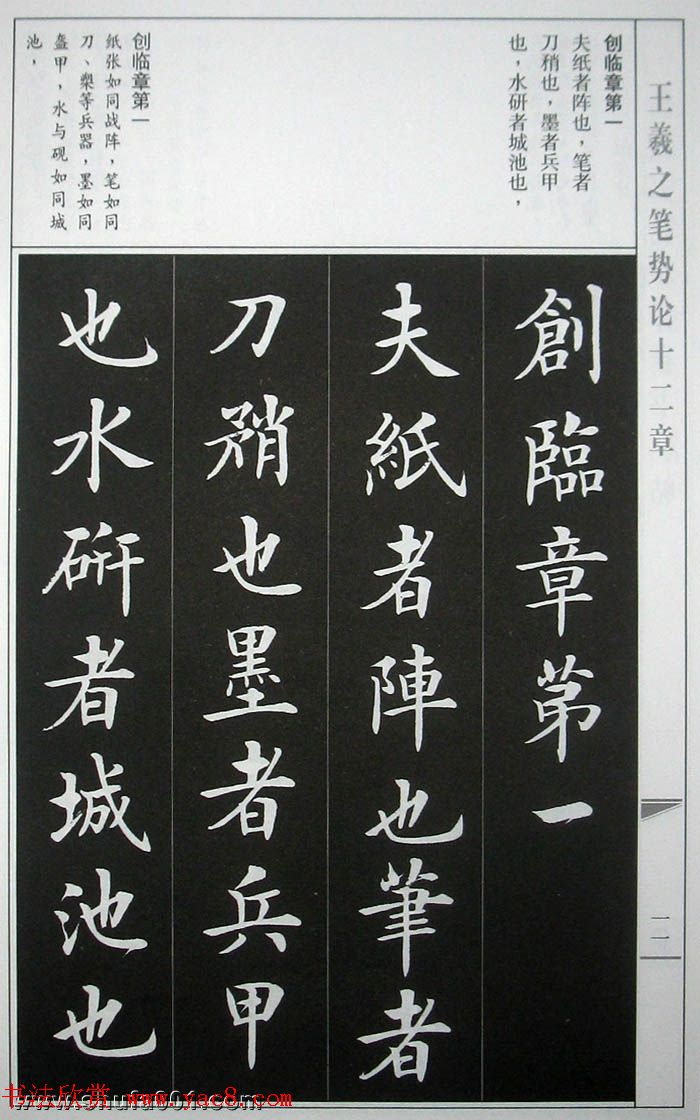 王羲之笔势论十二章
二一
创临章第一
夫纸者阵也，笔者
刀稍也，墨者兵甲
也，水研者城池也，
创临章第一
纸张如同战阵，笔如同
刀、槊等兵器，墨如同
盔甲，水与砚如同城
池，
創臨章苐一
夫紙者陣也筆者
刀矟也墨者兵甲
也水研者城池也
书法欣赏 www.yac8.com